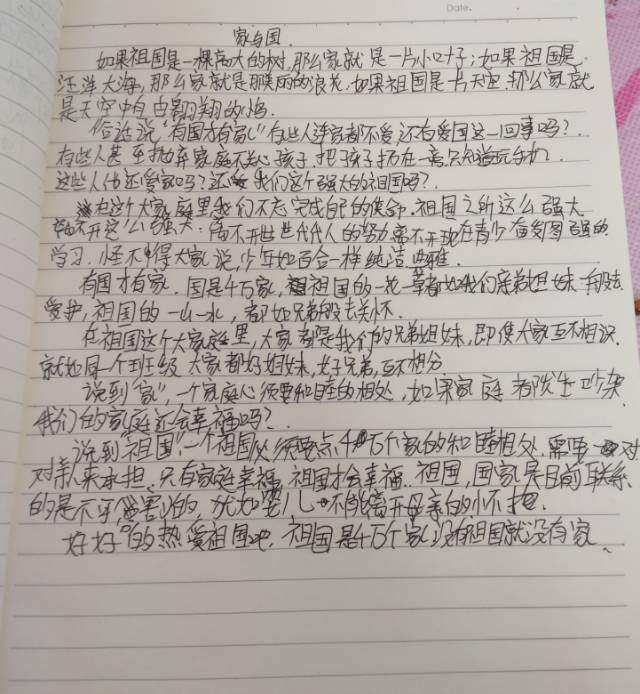 Date.
家与国
如果祖国是一棵高大的树,那么家就是一片小叶子;如果祖国是
汪洋大海,那么家就是那美丽的浪花.如果祖国是一片天空.那么家就
是天空中自由翱翔的鸟.
俗话说"有国才有家"有些人连家都不爱,还有爱国这一回事吗?
有些人甚至抛弃家庭不关心孩子,把孩子扔在一旁只知道玩手机.
这些人他还爱家吗?还爱我们这个强大的祖国吗?
在这个大家庭里我们不忘完成自己的使命.祖国之所这么强大
离不开世世代代人的努力离不开现在青少奋发图强的
学习.怪不得大家说,少年如百合一样纯洁
有国才有家.国是千万家,祖国的一花一草都如我们亲弟姐妹一般去
爱护,祖国的一山一水,都如兄弟般去关怀.
在祖国这个大家庭里,大家都是我们的兄弟姐妹,即使大家互不相识.
就如同一个班级大家都好姐妹,好兄弟,互不相分.
说到"家",一个家庭必须要和睦的相处,如果家庭都发生吵架
我们的家庭还会幸福吗?
说到"祖国",一个祖国必须要点千万个家的和睦相处.需要一对
对亲人来承担.只有家庭幸福,祖国才会幸福.祖国,国家是目前联系
的是不可的,犹如婴儿不能离开母亲的怀抱.
好好的热爱祖国吧.祖国是千万个家,没有祖国就没有家.